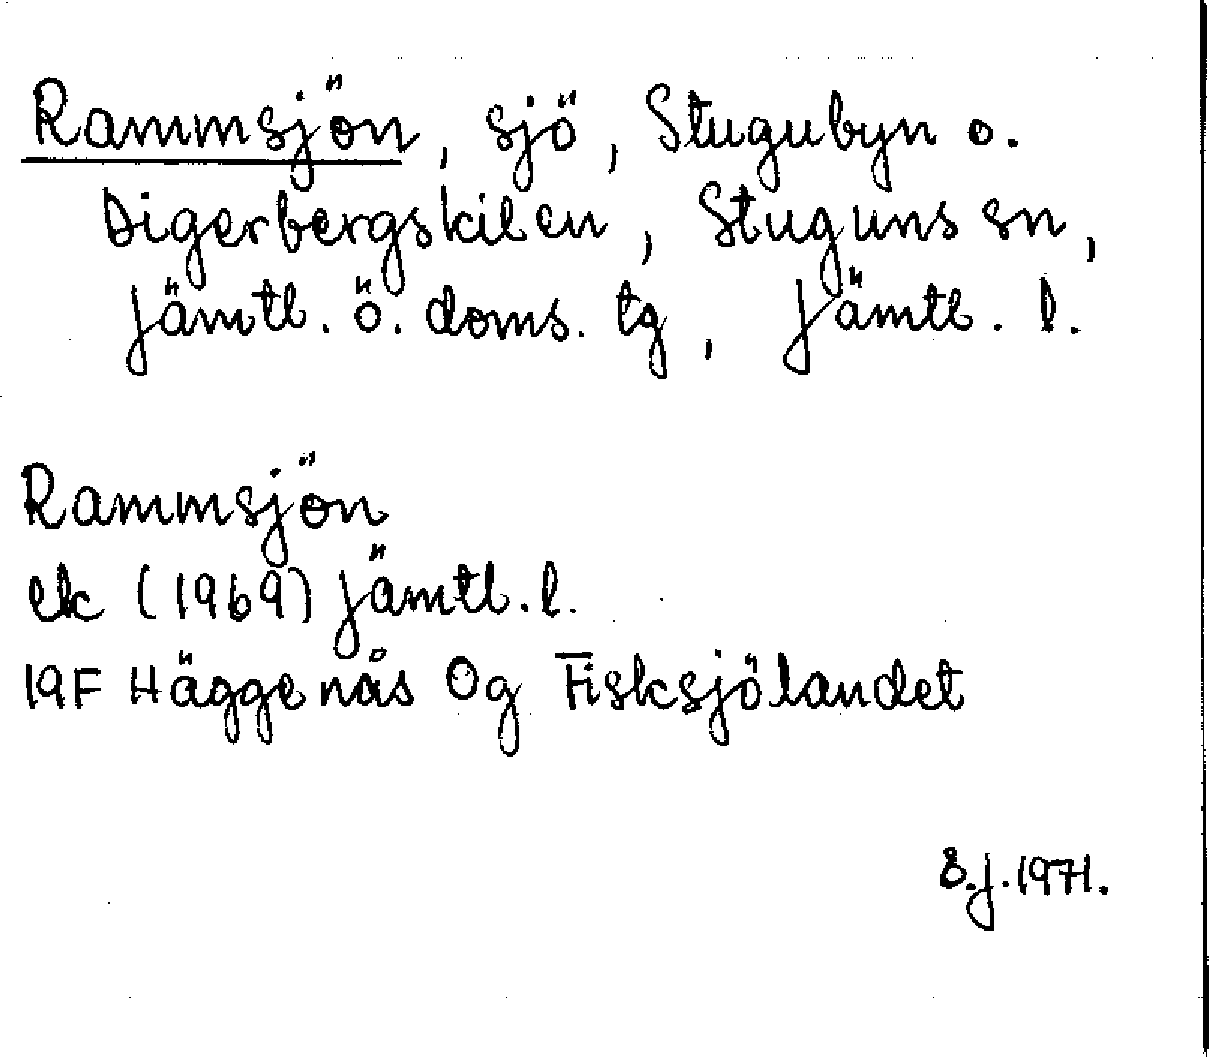 Rammsjön, sjö, Stugubyn o.
Digerbergskilen, Stuguns sn,
Jämtl. ö. doms. tg, Jämtl. l.
Rammsjön
ek (1969) Jämtl. l.
19F Häggenås Og Fisksjölandet
E.J. 1971.